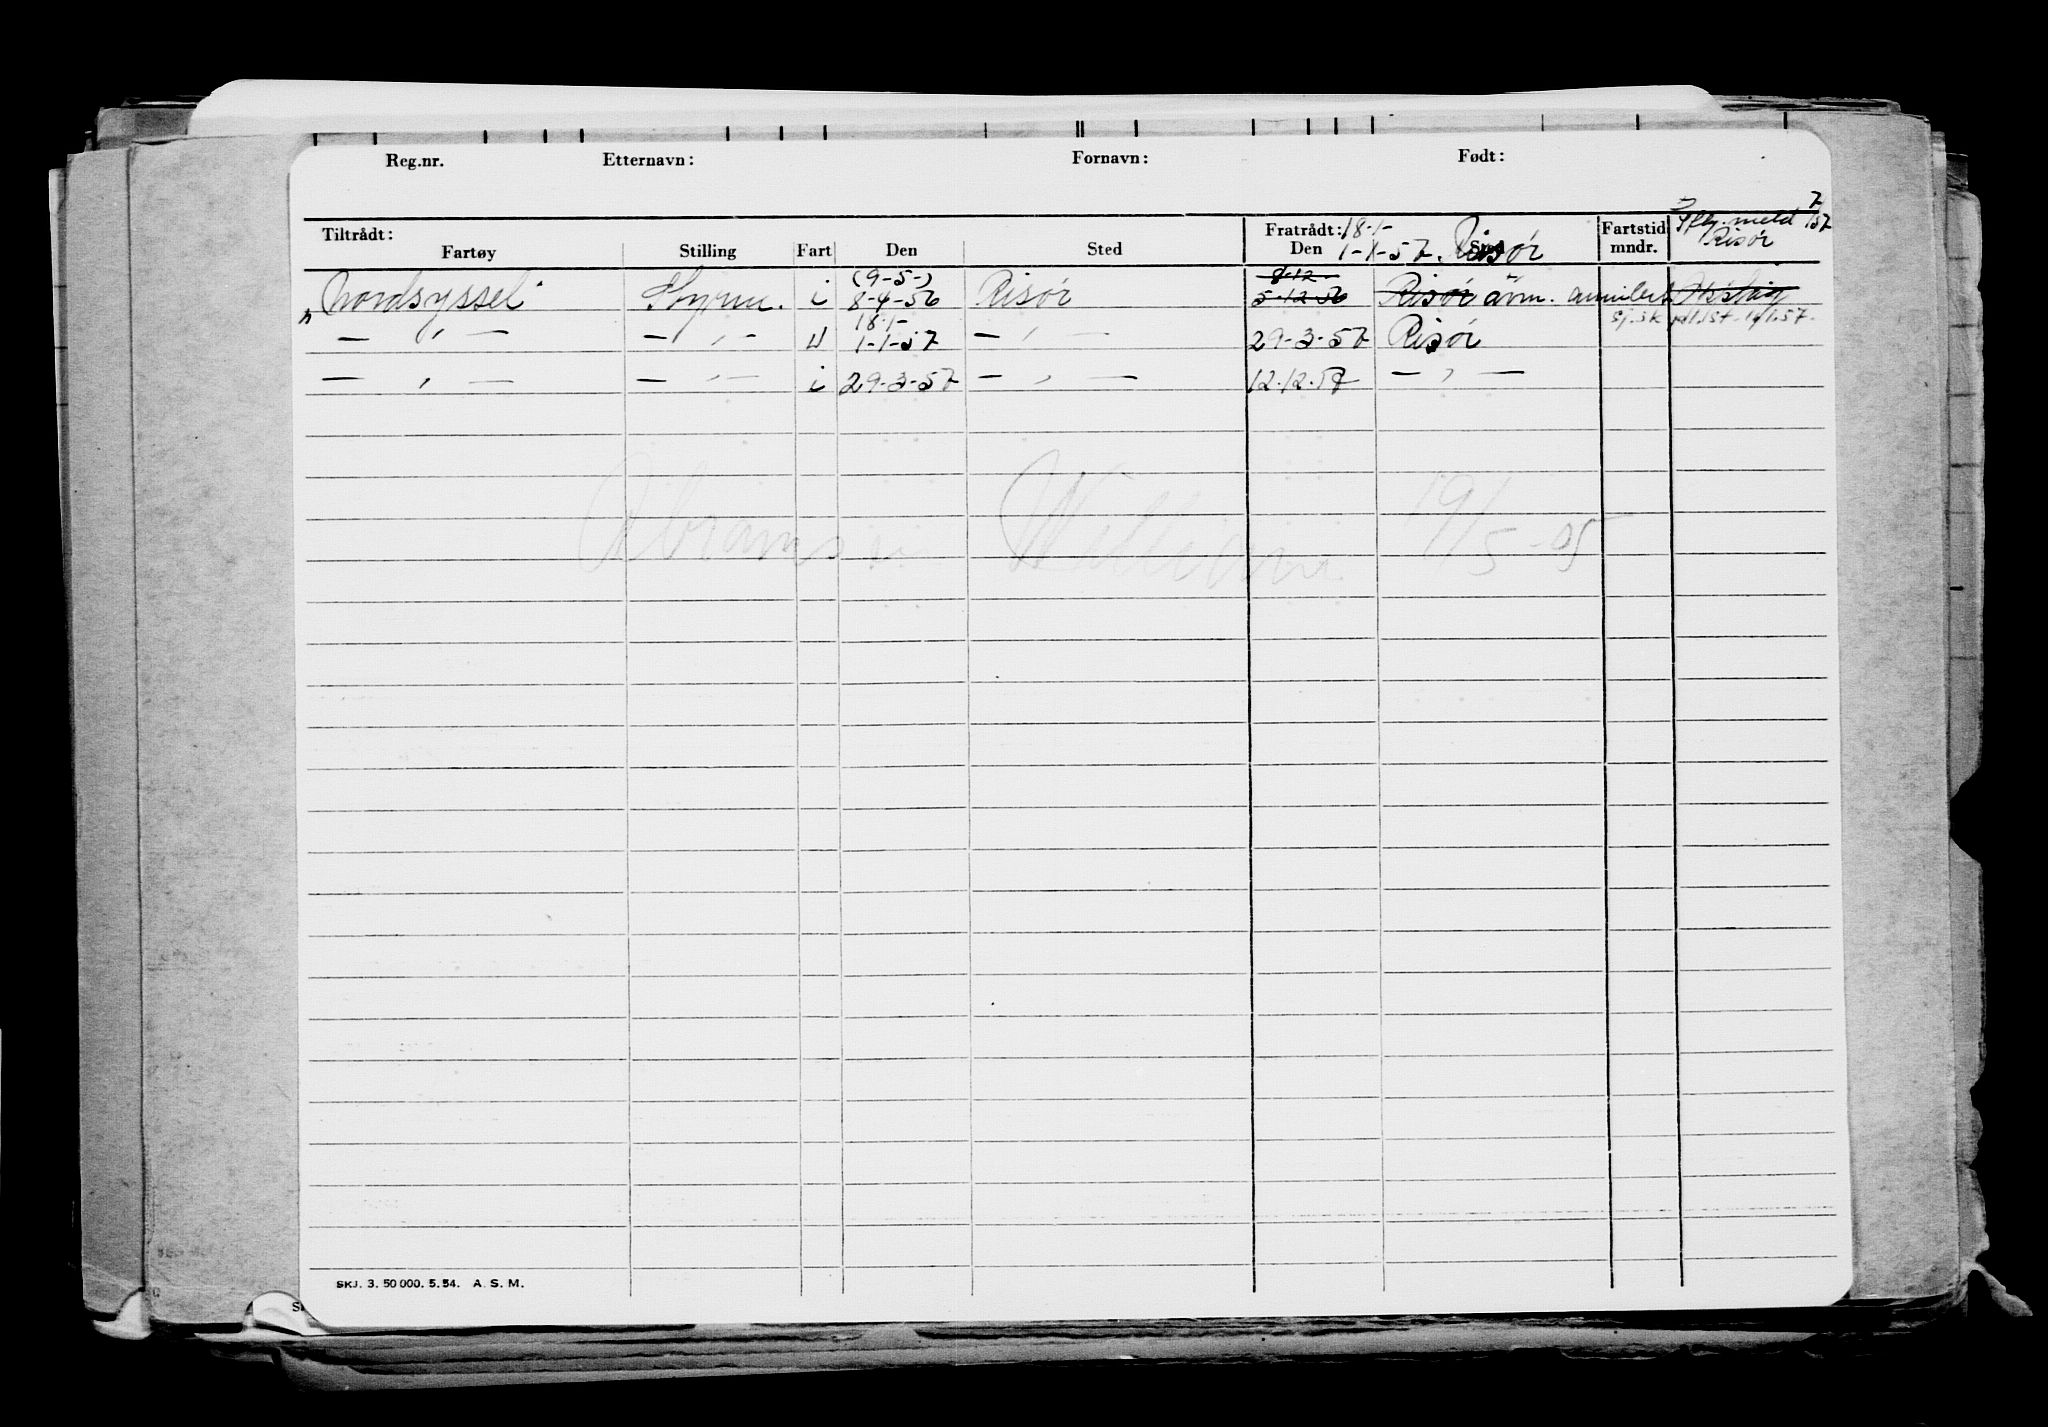 Reg.nr. Etternavn: Fornavn: Født:
7
meld /57
Risør
Tiltrådt: Fratrådt: 18-1- Fartstid
Fartøy Stilling Fart Den Sted Den 1-1-57. Risør mndr.
(9-5-) 8-12
"Nordsyssel" Styrm. i 8-4-56 Risør 5-12-56 Risør avm. annulert
18.1-
— " — — " — U 1-1-57 — " — 29-3-57 Risør
— " — — " — i 29-3-57 — " — 12.12.57 — " —
Abramsen William 19/5-05
SKJ. 3. 50 000. 5. 54. A. S. M.